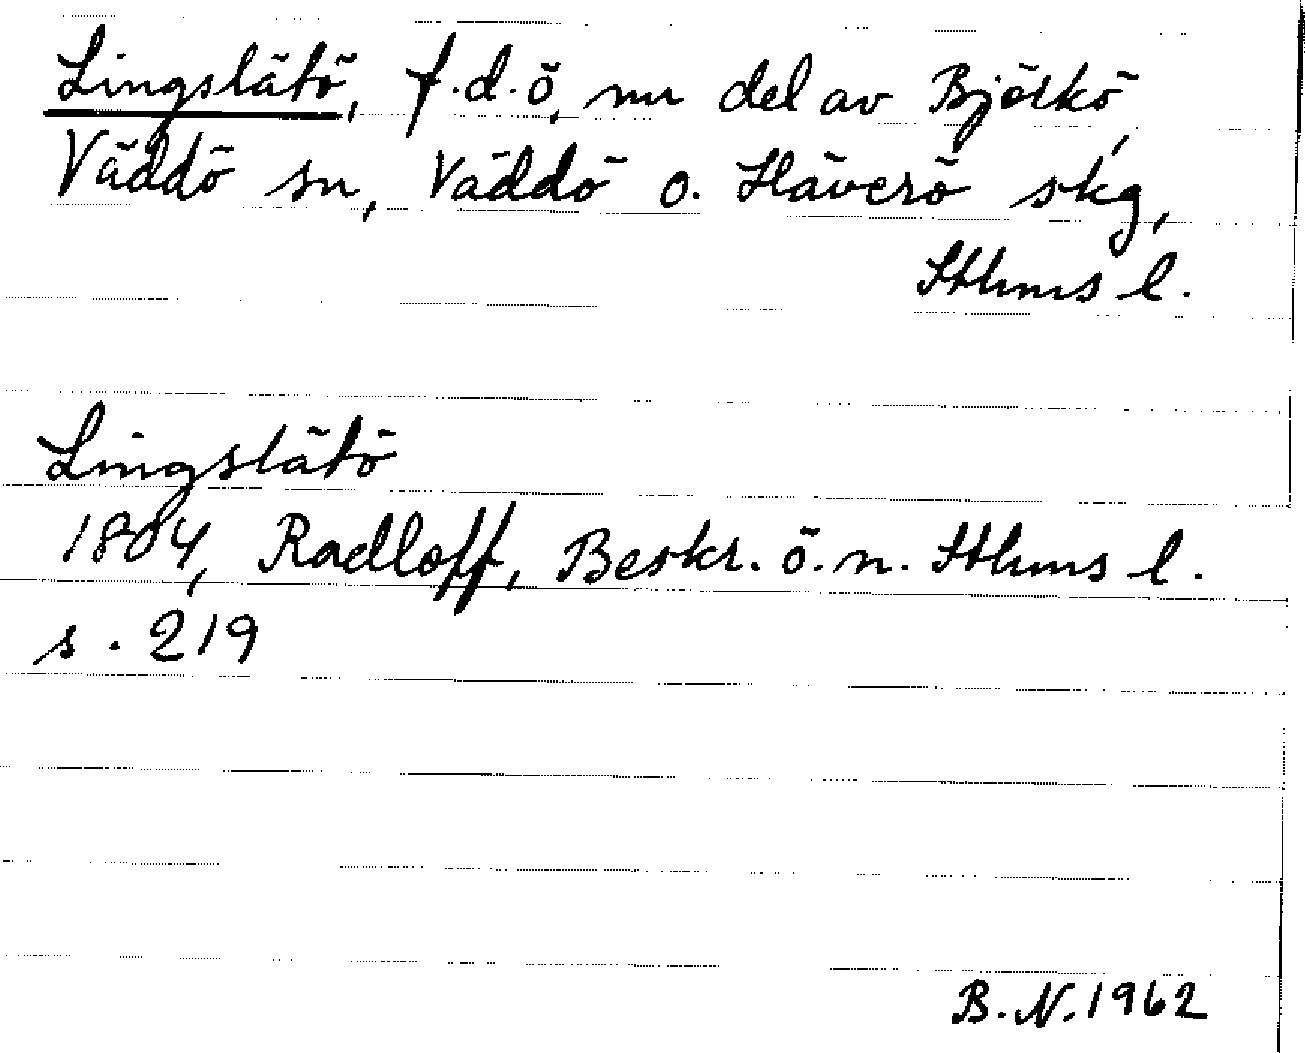 Lingslätö, f.d.ö, nu del av Björkö,
Väddö sn, Väddö o. Häverö skg,
Sthlms l.
Lingslätö
1804, Radloff, Beskr. ö. n. Sthlms l.
s. 219
B.N. 1962